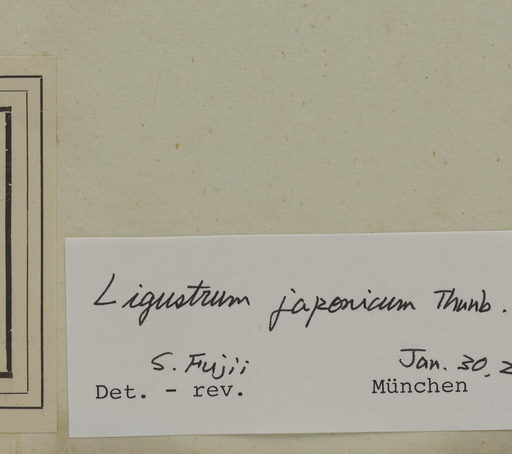 Ligustrum japonicum Thunb.
S. Fujii Jan. 30, 2
Det. - rev. München